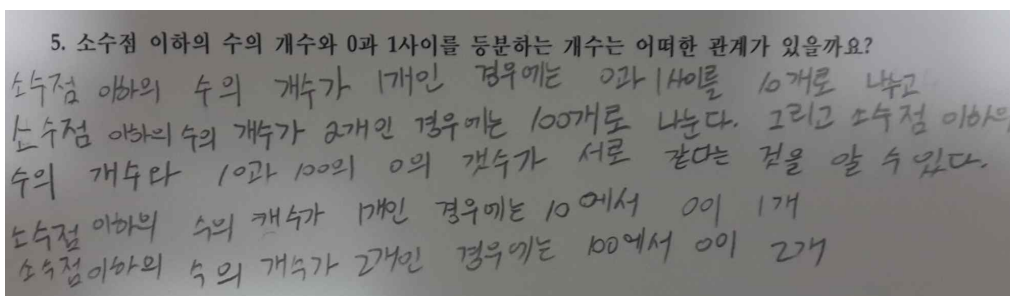 5. 소수점 이하의 수의 개수와 0과 1사이를 등분하는 개수는 어떠한 관계가 있을까요?
소수점 이하의 수의 개수가 1개인 경우에는 0과 1사이를 10개로 나누고
소수점 이하의 수의 개수가 2개인 경우에는 100개로 나눈다. 그리고 소수점 이하의
수의 개수와 10과 100의 0의 갯수가 서로 같다는 것을 알 수 있다.
소수점 이하의 수의 개수가 1개인 경우에는 10에서 0이 1개
소수점이하의 수의 개수가 2개인 경우에는 100에서 0이 2개